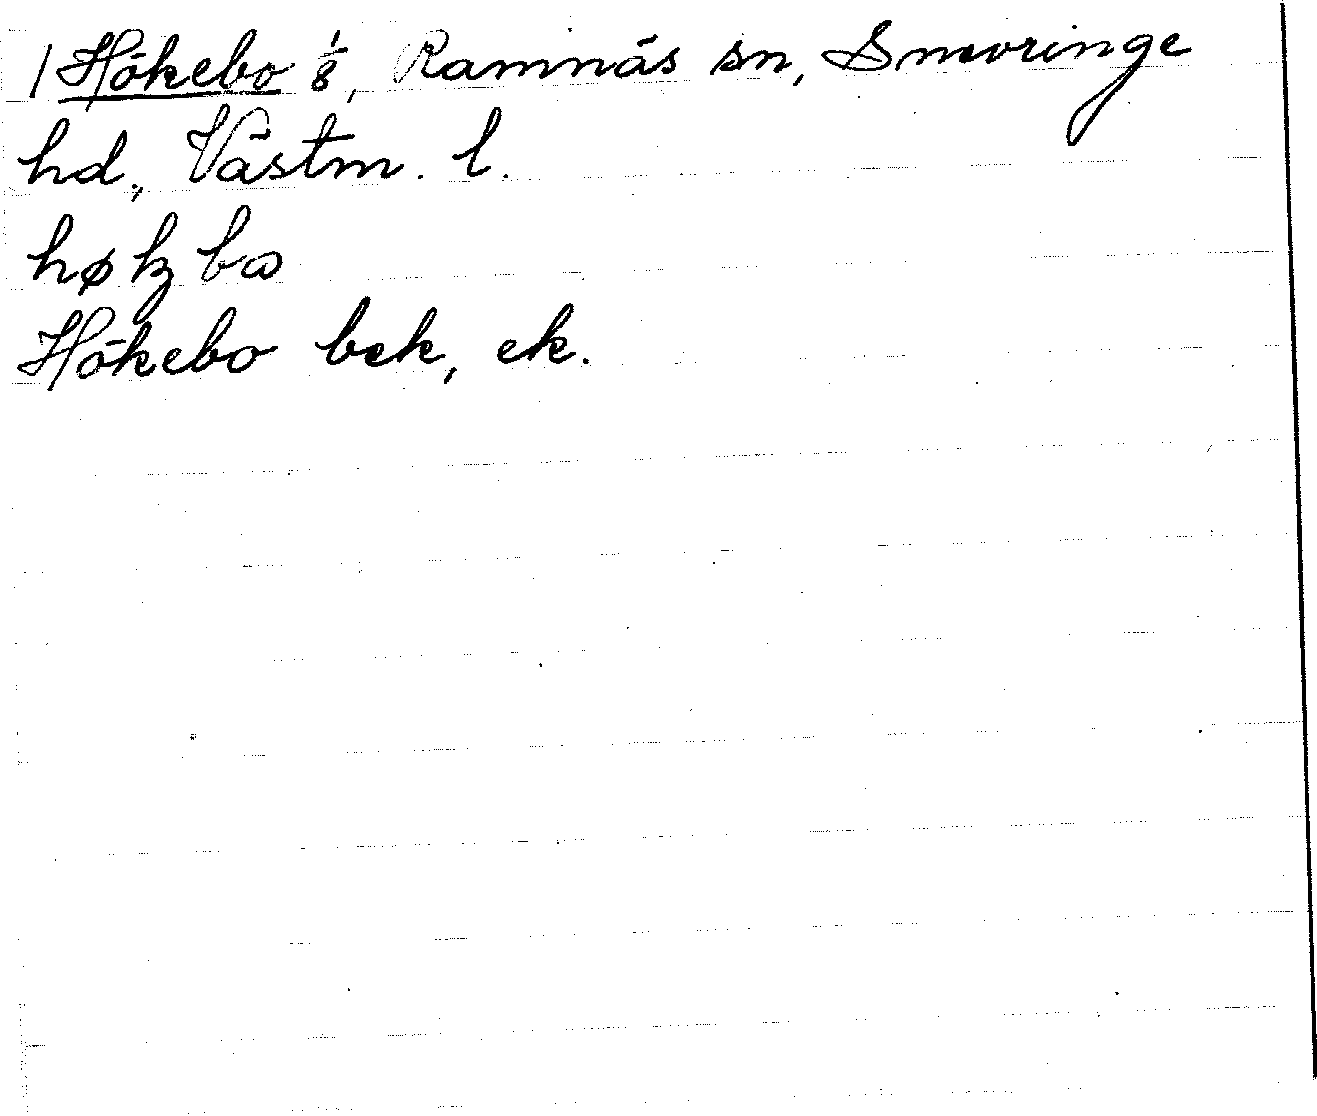 1 Hökebo 1/8, Ramnäs sn, Snevringe
hd, Västm. l.
høkʒbɷ
Hökebo bek, ek.